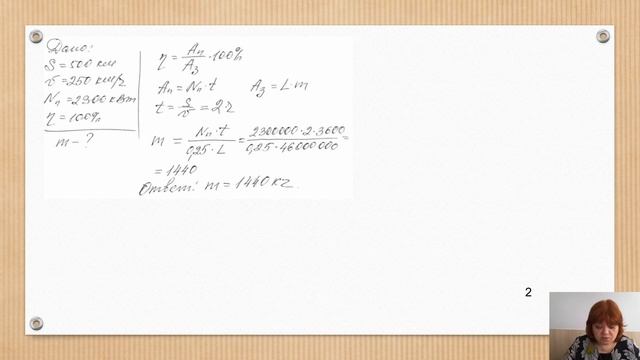 Дано:
S = 500 км
v = 250 км/ч
Nп = 2300 кВт
η = 100%
m - ?
η = Aп/Aз · 100%
Aп = Nп · t    Aз = L · m
t = S/v = 2 ч
m = Nп · t / 0,25 · L = 2300000 · 2 · 3600 / 0,25 · 46000000 =
= 1440
Ответ: m = 1440 кг.
2